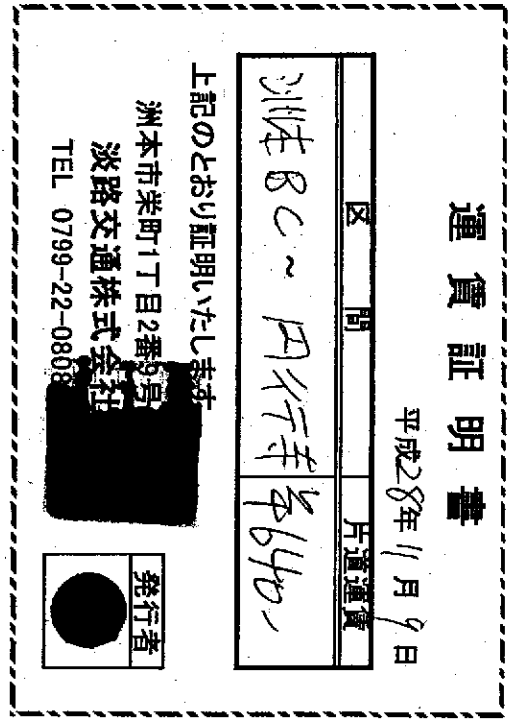 運賃証明書
平成28年11月9日
区間 片道運賃
洲本BC~円行寺 ¥640-
上記のとおり証明いたします
洲本市栄町1丁目2番9号
淡路交通株式会社
TEL 0799-22-0808
発行者